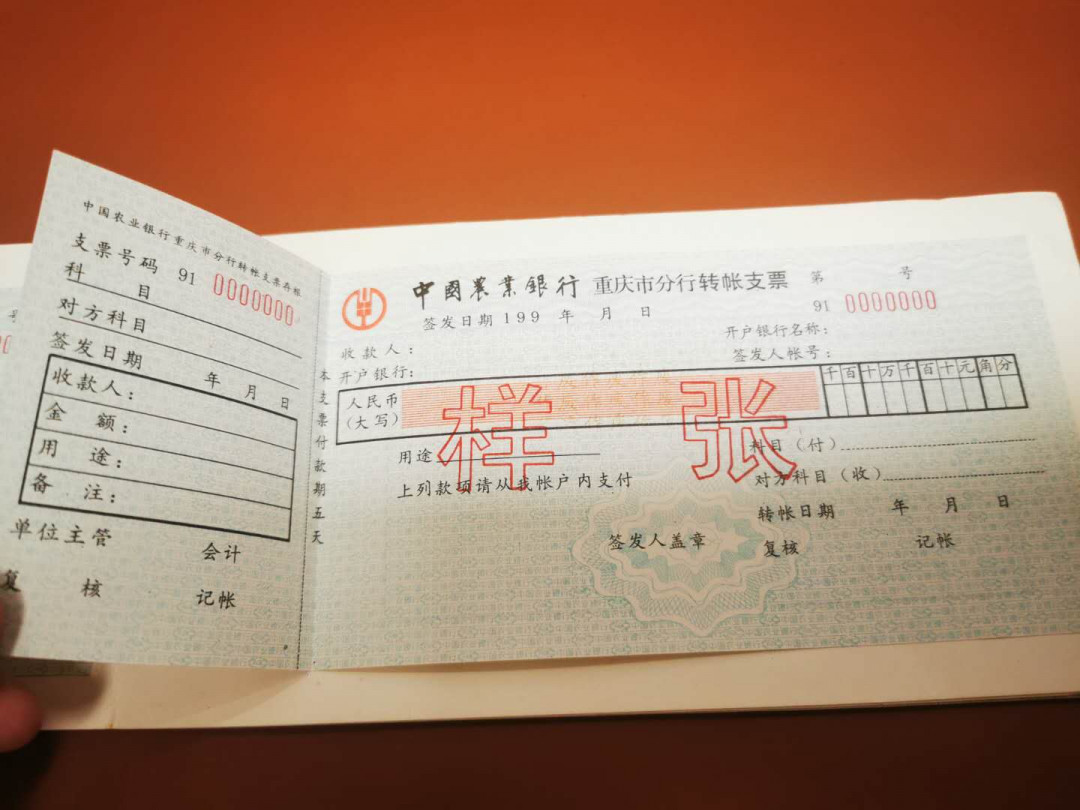 中国农业银行重庆市分行转帐支票存根
支票号码 91 0000000
科 目
对方科目
签发日期 年 月 日
收款人:
金 额:
用 途:
备 注:
单位主管 会计
复 核 记帐
本支票付款期五天
中國農業銀行 重庆市分行转帐支票 第 号
91 0000000
签发日期 199 年 月 日
开户银行名称:
收款人:
签发人帐号:
开户银行:
人民币
(大写)
千百十万千百十元角分
样 张
用途
科目(付)
上列款项请从我帐户内支付
对方科目(收)
转帐日期 年 月 日
签发人盖章
复核 记帐